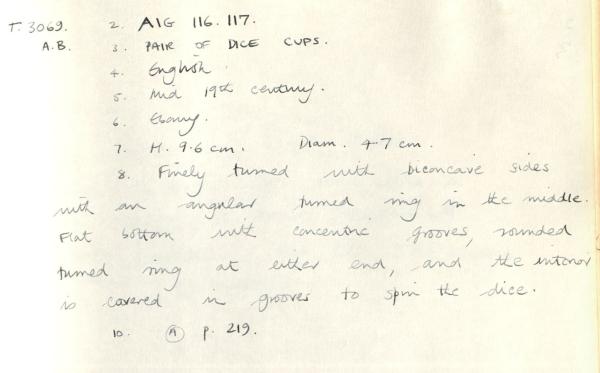 T. 3069. 2. AIG 116. 117.
A.B. 3. PAIR OF DICE CUPS.
4. English.
5. Mid 19th century.
6. Ebony.
7. H. 9.6 cm. Diam. 4.7 cm.
8. Finely turned with biconcave sides
with an angular turned ring in the middle.
Flat bottom with concentric grooves, rounded
turned ring at either end, and the interior
is covered in grooves to spin the dice.
10. A p. 219.